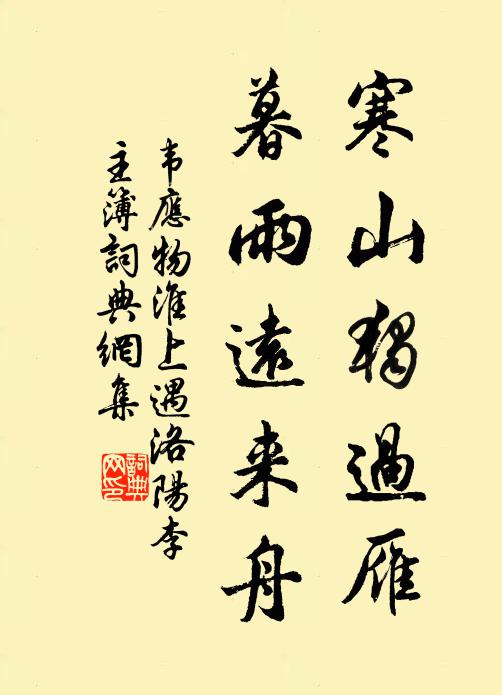 寒山獨過雁
暮雨遠来舟
韦應物淮上遇洛陽李
主簿詞典網集
詞典网印